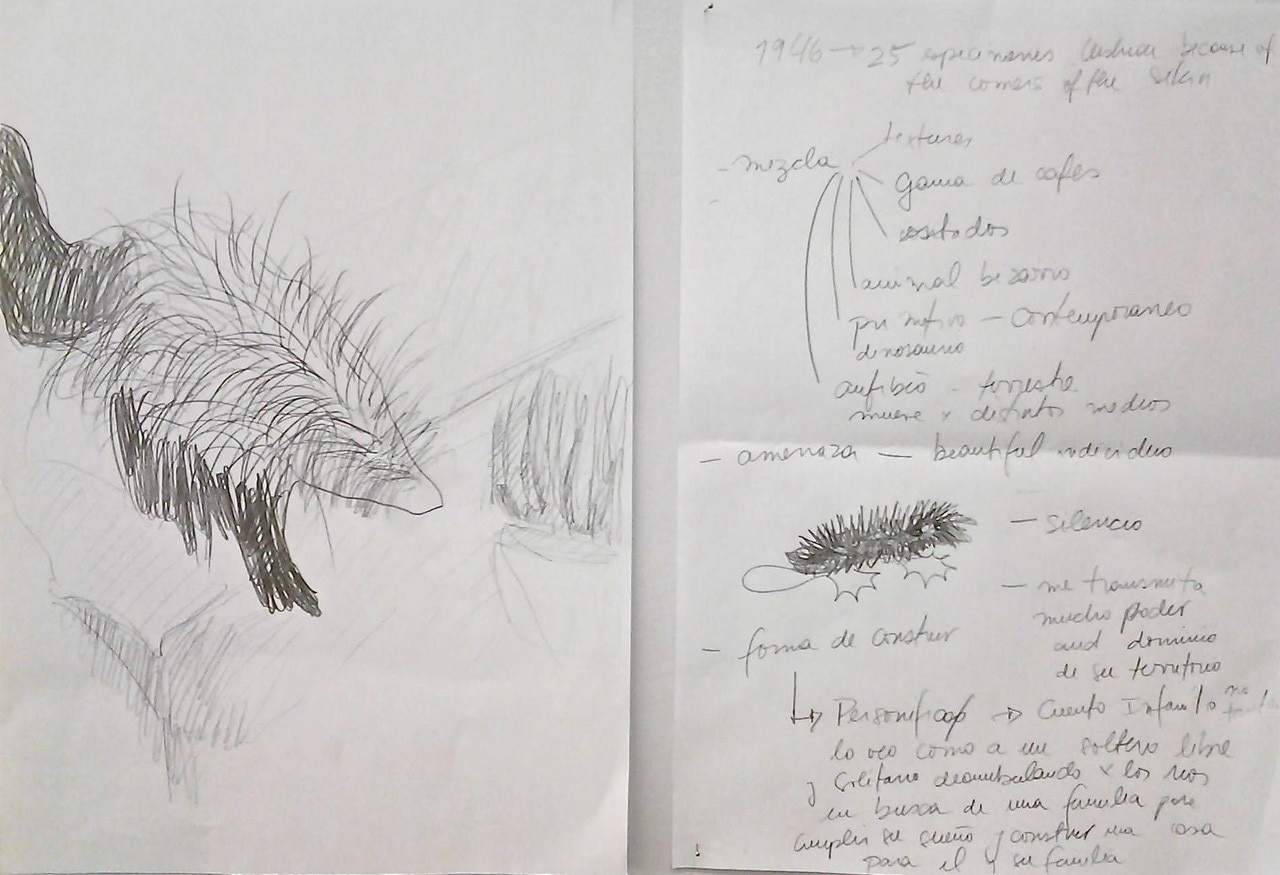 1946 → 25 especimenes because of
the corners of the skin
- mezcla
texturas
gama de cafes
animal bizarro
primitivo - contemporaneo
dinosaurio
anfibio - terrestre
mueve x distintos medios
- amenaza - beautiful
- silencio
- me transmite
mucho poder
and dominio
de su territorio
- forma de construir
↳ → Cuento Infantil o
lo veo como a un soltero libre
y solitario deambulando x los rios
en busca de una familia para
cumplir su sueño y construir una casa
para el y su familia